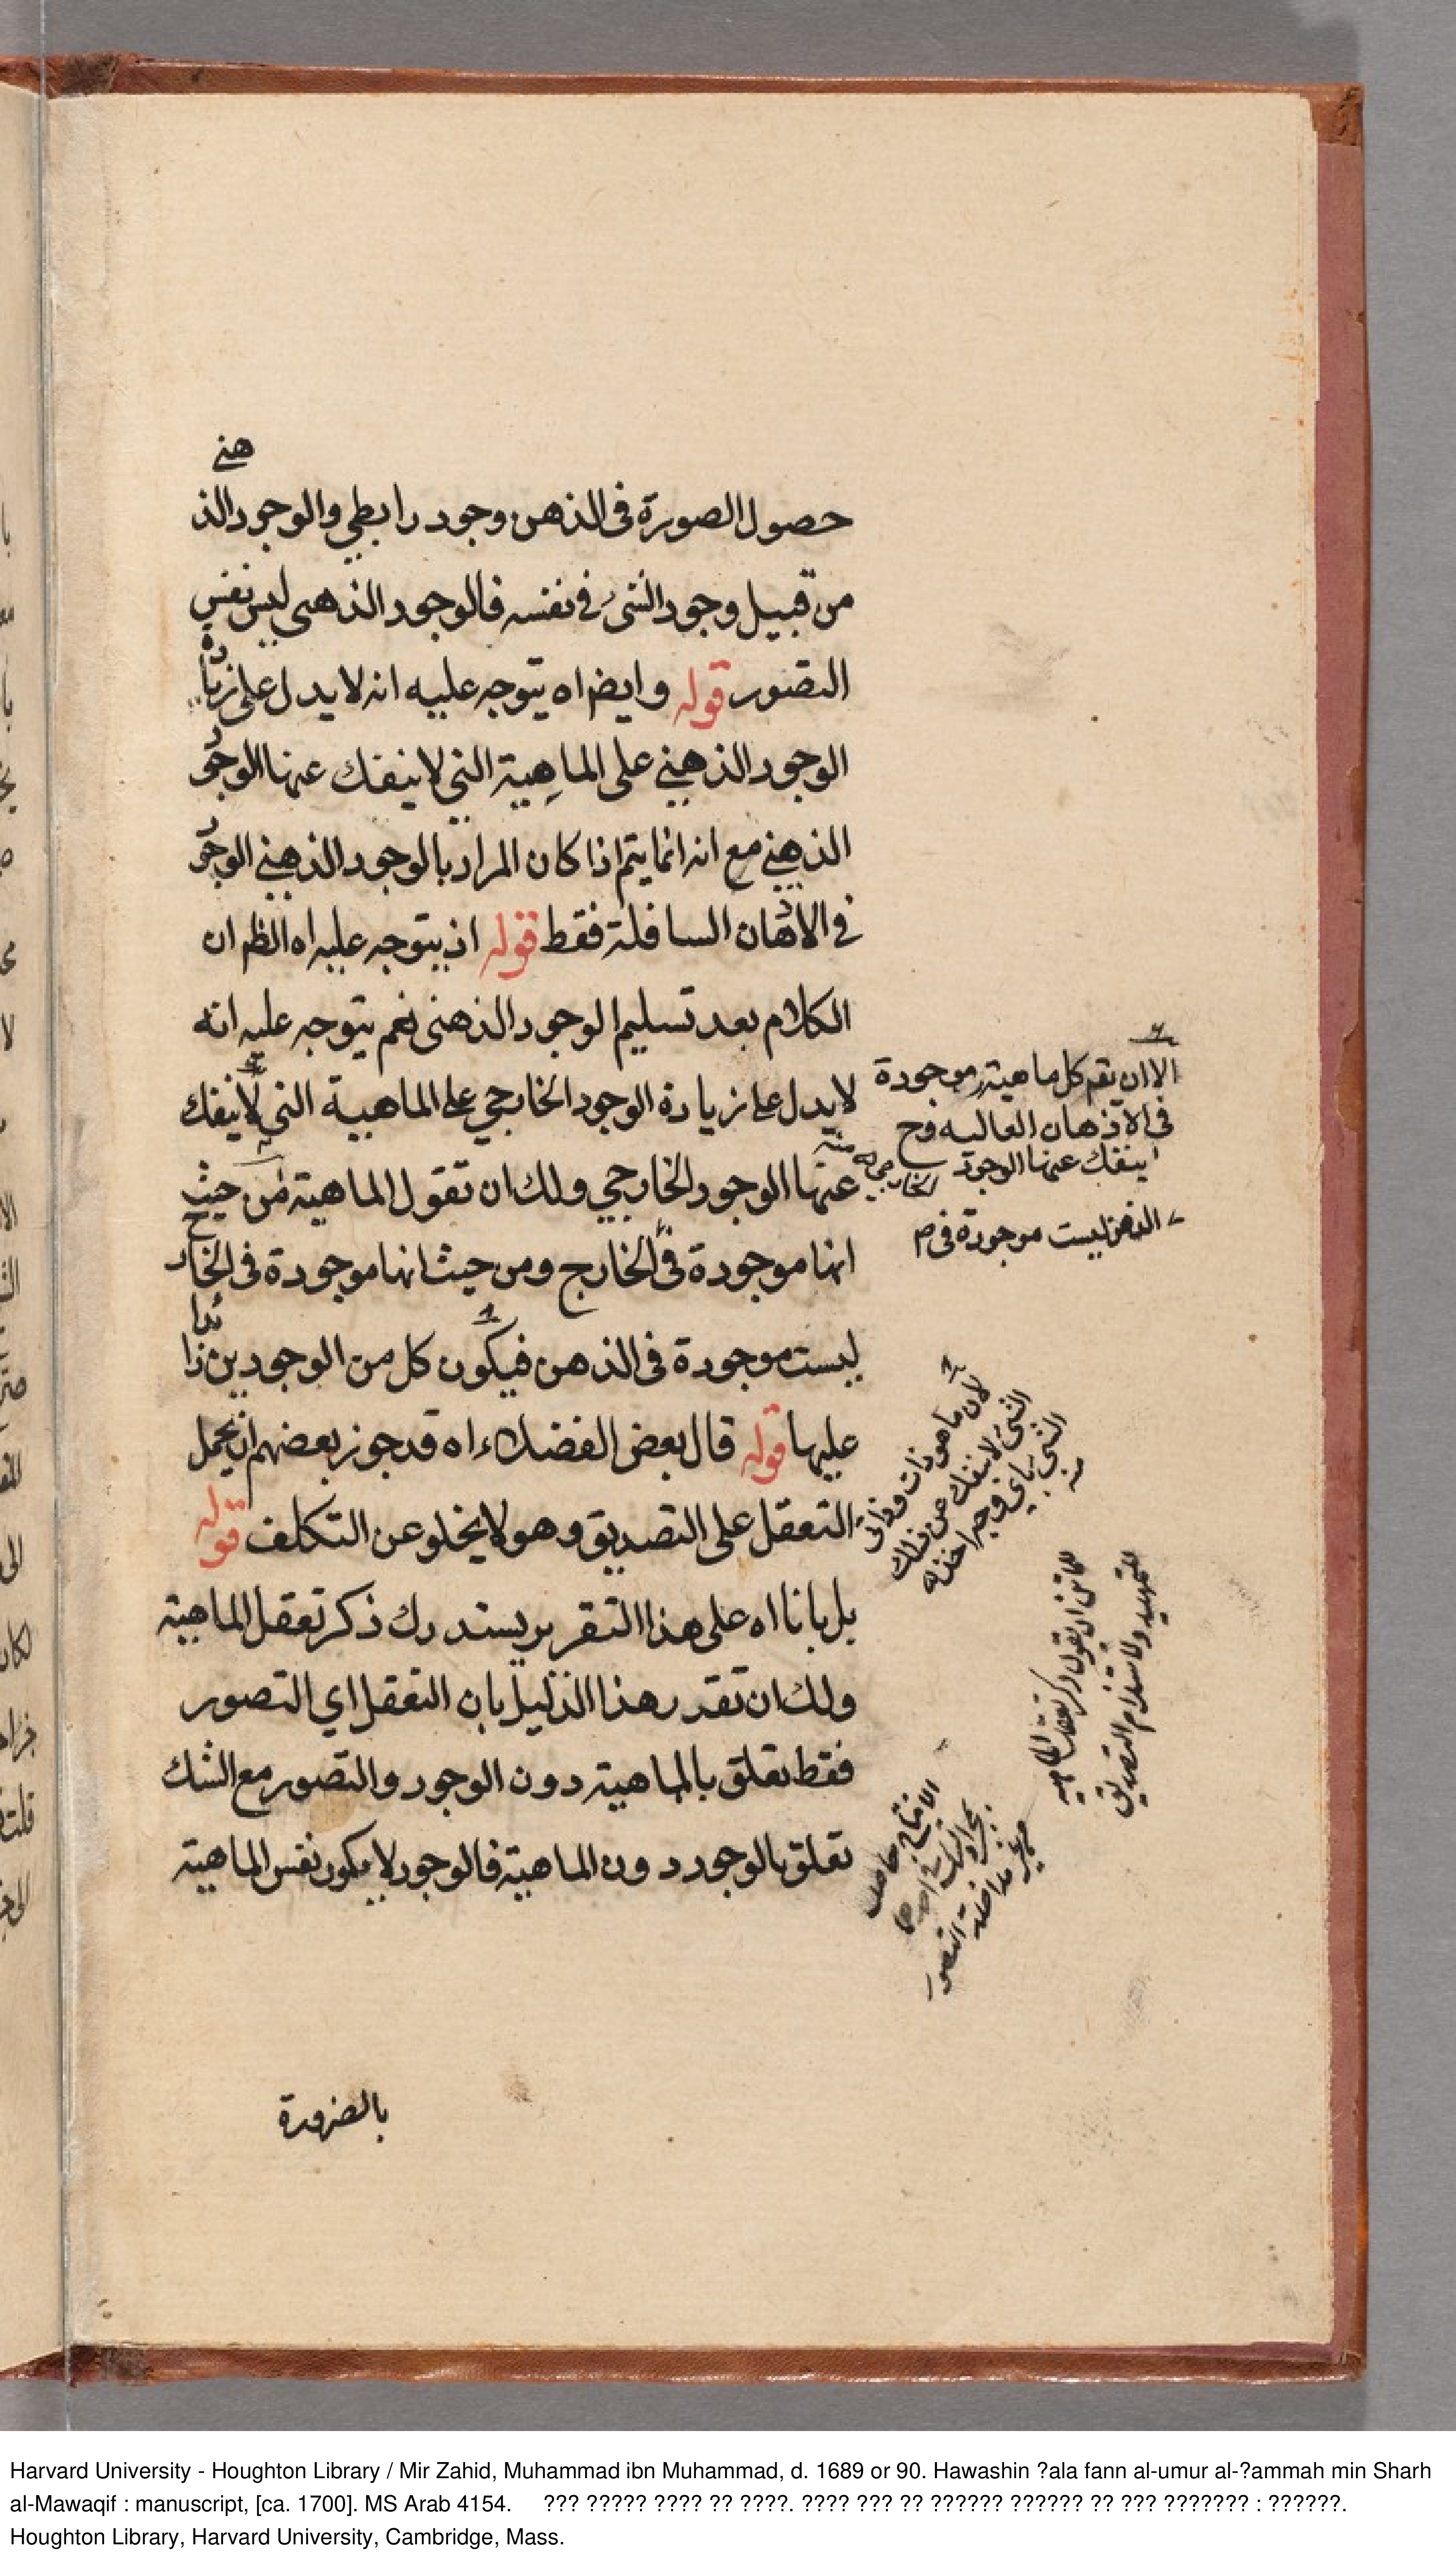 حصول الصورة فى الذهن وجود رابطي والوجود الذهني
من قبيل وجود الشئ في نفسه فالوجود الذهنى ليس نفس
التصور قوله وايضا اه يتوجه عليه انه لا يدل على زيادة
الوجود الذهني على الماهية التي لا ينفك عنها الوجود
الذهني مع انه انما يتم اذا كان المراد بالوجود الذهني الوجود
في الاذهان السافلة فقط قوله اذ يتوجه عليه اه الظ ان
الكلام بعد تسليم الوجود الذهنى نعم يتوجه عليه انه
لا يدل على زيادة الوجود الخارجي على الماهية التي لا ينفك
عنها الوجود الخارجي ولك ان تقول الماهية من حيث
انها موجودة فى الخارج ومن حيث انها موجودة فى الخارج
ليست موجودة فى الذهن فيكون كل من الوجودين زائدا
عليها قوله قال بعض الفضلاء اه قد جوز بعضهم ان يحمل
التعقل على التصديق وهو لا يخلو عن التكلف قوله
بل بانا اه على هذا التقرير يستدرك ذكر تعقل الماهية
ولك ان تقرر هذا الدليل بان التعقل اي التصور
فقط تعلق بالماهية دون الوجود والتصور مع الشك
تعلق بالوجود دون الماهية فالوجود لا يكون نفس الماهية
بالضرورة
الا ان يقم كل ماهية موجودة
فى الاذهان العاليه وح
ينفك عنها الوجود الخارجي
الذهن ليست موجودة فى
لان ما هو ذات وذاتى
الشئ لا ينفك عن ذلك
الشئ باي وجه اخذ
منه
Harvard University - Houghton Library / Mir Zahid, Muhammad ibn Muhammad, d. 1689 or 90. Hawashin ?ala fann al-umur al-?ammah min Sharh
al-Mawaqif : manuscript, [ca. 1700]. MS Arab 4154. ??? ????? ???? ?? ????. ???? ??? ?? ?????? ?????? ?? ??? ??????? : ??????.
Houghton Library, Harvard University, Cambridge, Mass.